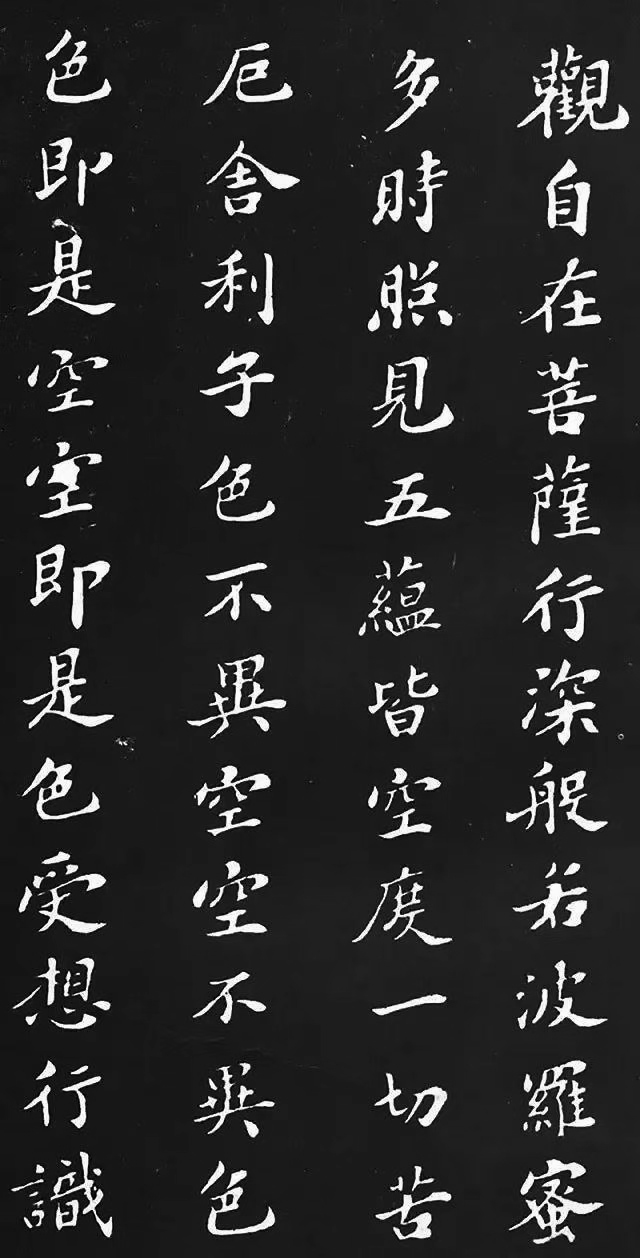 觀自在菩薩行深般若波羅蜜
多時照見五蘊皆空度一切苦
厄舍利子色不異空空不異色
色即是空空即是色受想行識